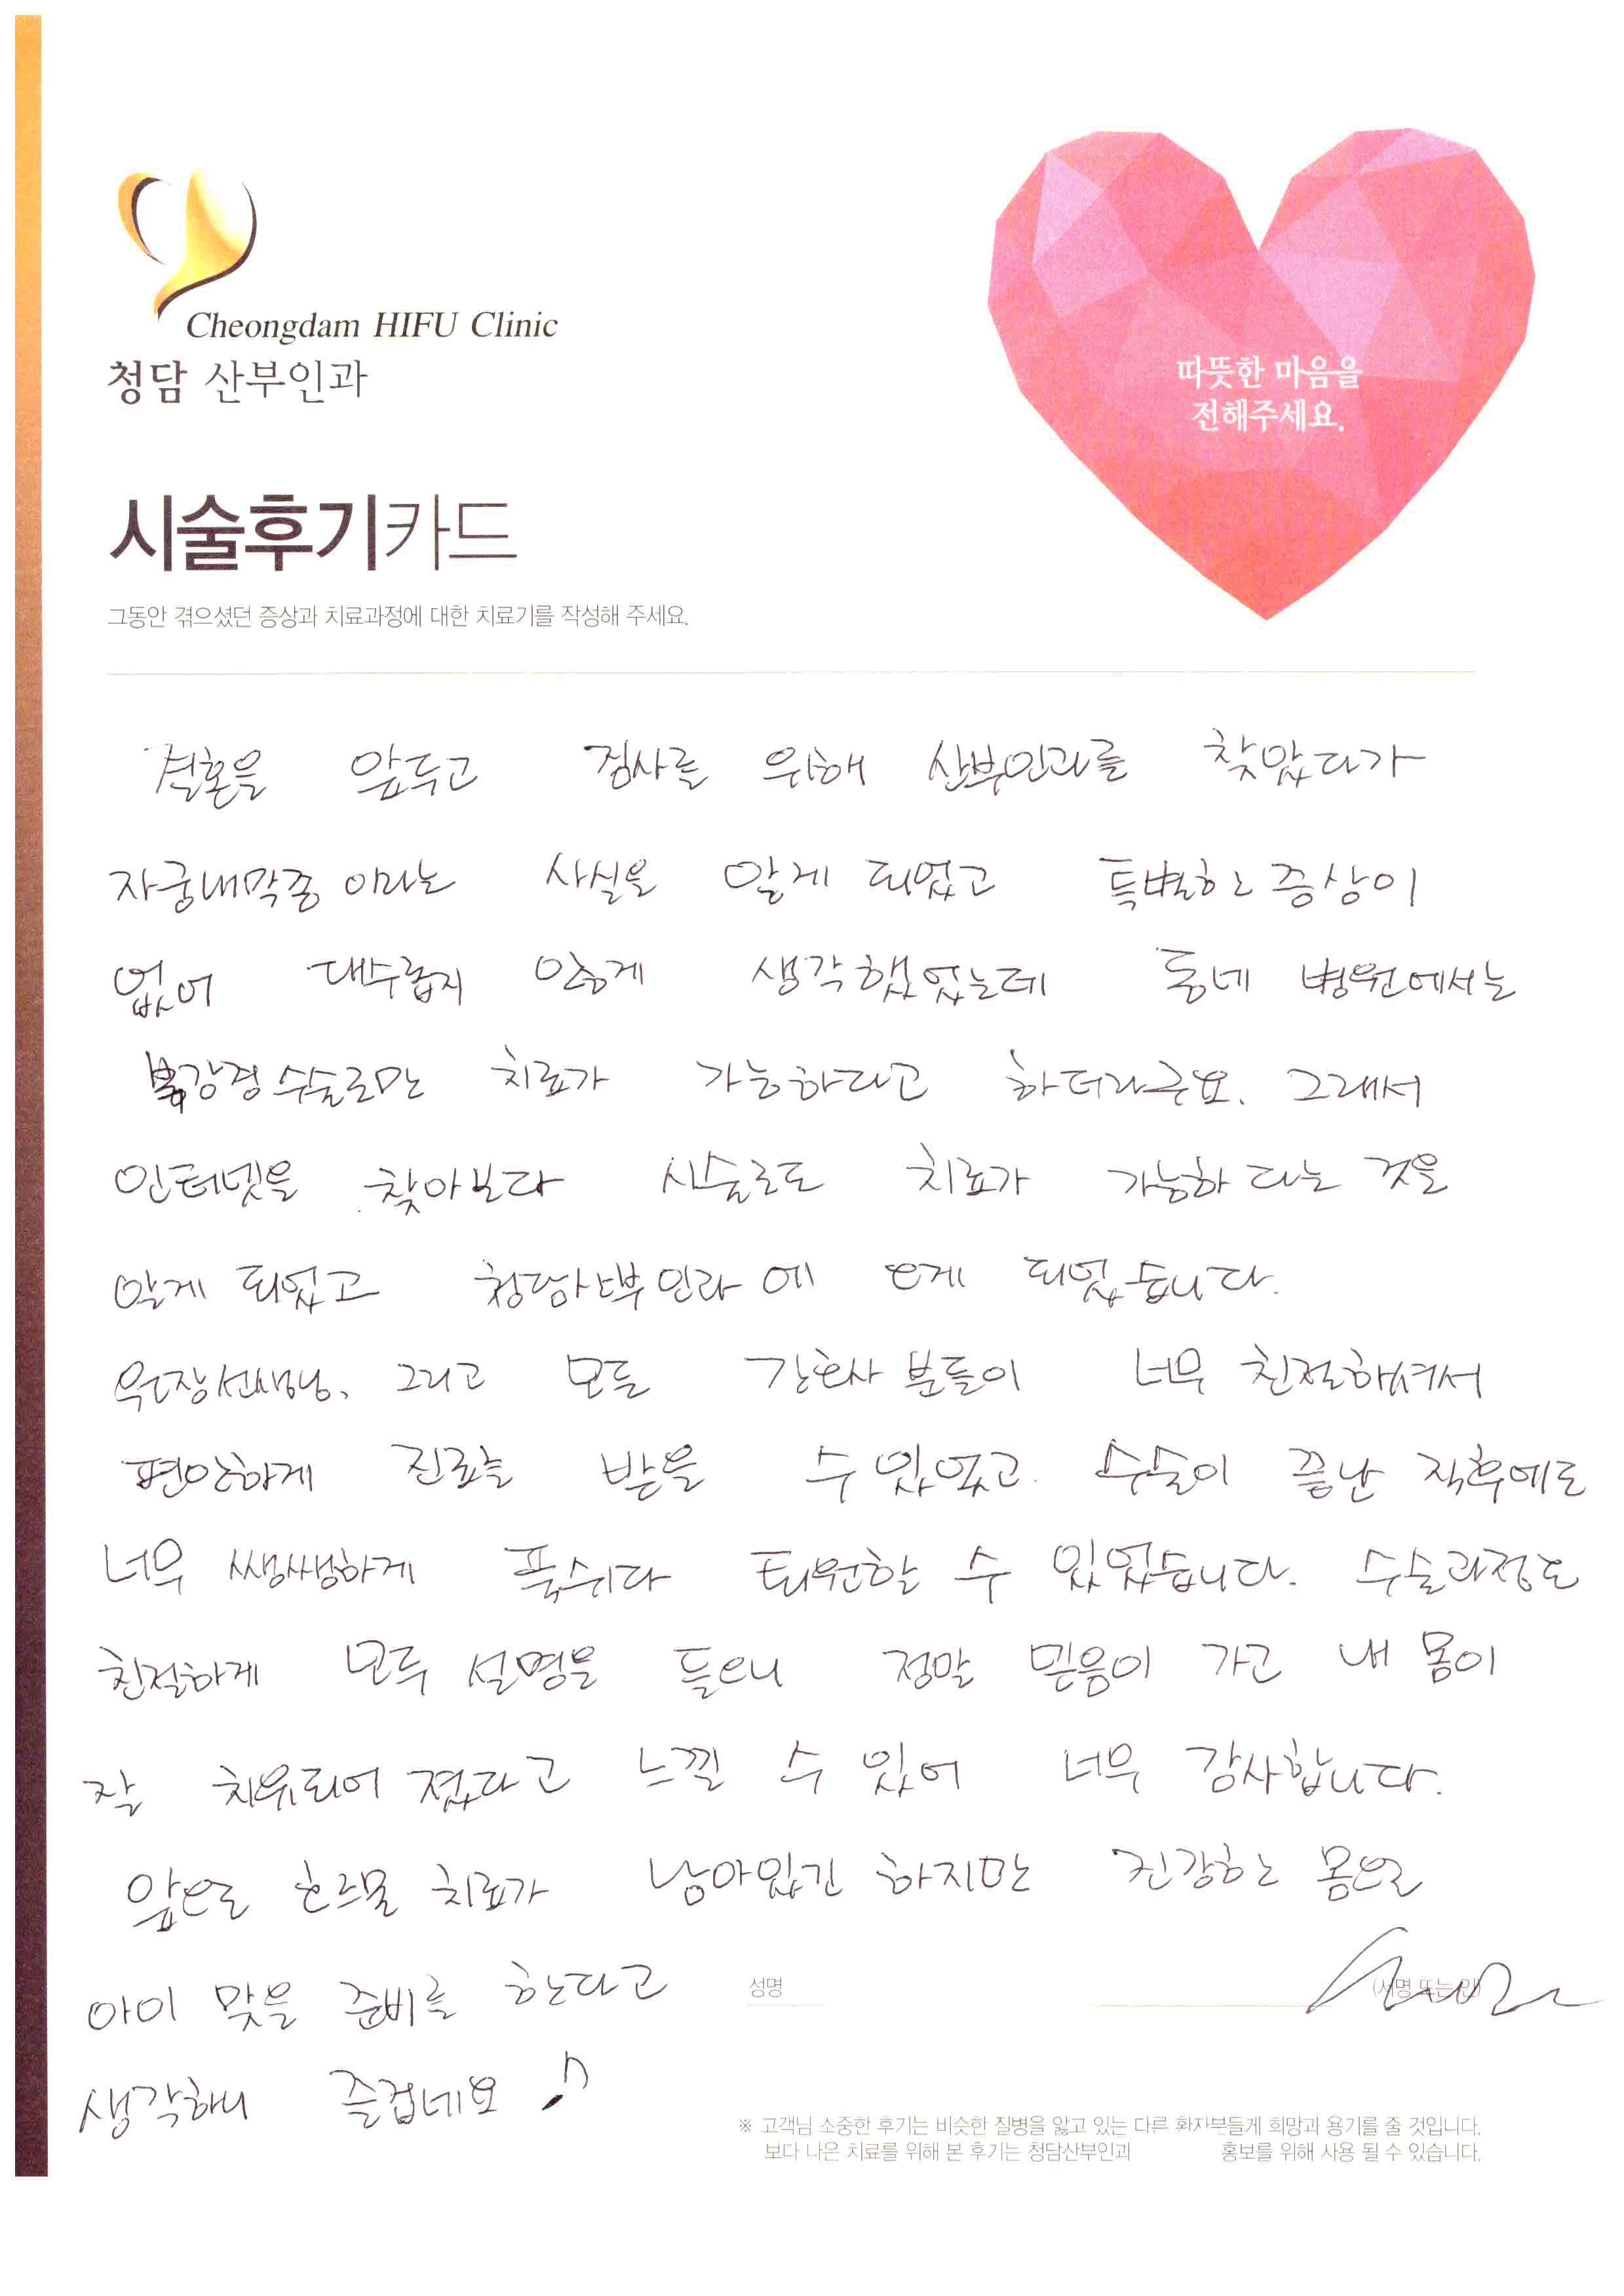 Cheongdam HIFU Clinic
청담 산부인과
따뜻한 마음을
전해주세요.
시술후기카드
그동안 겪으셨던 증상과 치료과정에 대한 치료기를 작성해 주세요.
결혼을 앞두고 검사를 위해 산부인과를 찾았다가
자궁내막종 이라는 사실을 알게 되었고 특별한 증상이
없어 대수롭지 않게 생각했었는데 동네 병원에서는
복강경 수술로만 치료가 가능하다고 하더라구요. 그래서
인터넷을 찾아보다 시술로도 치료가 가능하다는 것을
알게 되었고 청담산부인과에 오게 되었습니다.
원장선생님, 그리고 모든 간호사 분들이 너무 친절하셔서
편안하게 진료를 받을 수 있었고 수술이 끝난 직후에도
너무 쌩쌩하게 푹쉬다 퇴원할 수 있었습니다. 수술과정도
친절하게 모두 설명을 들으니 정말 믿음이 가고 내 몸이
잘 치유되어 졌다고 느낄 수 있어 너무 감사합니다.
앞으로 호르몬 치료가 남아있긴 하지만 건강한 몸으로
아이 맞을 준비를 한다고
성명 (서명 또는 인)
생각하니 즐겁네요
※ 고객님 소중한 후기는 비슷한 질병을 앓고 있는 다른 환자분들게 희망과 용기를 줄 것입니다.
보다 나은 치료를 위해 본 후기는 청담산부인과 홍보를 위해 사용 될 수 있습니다.